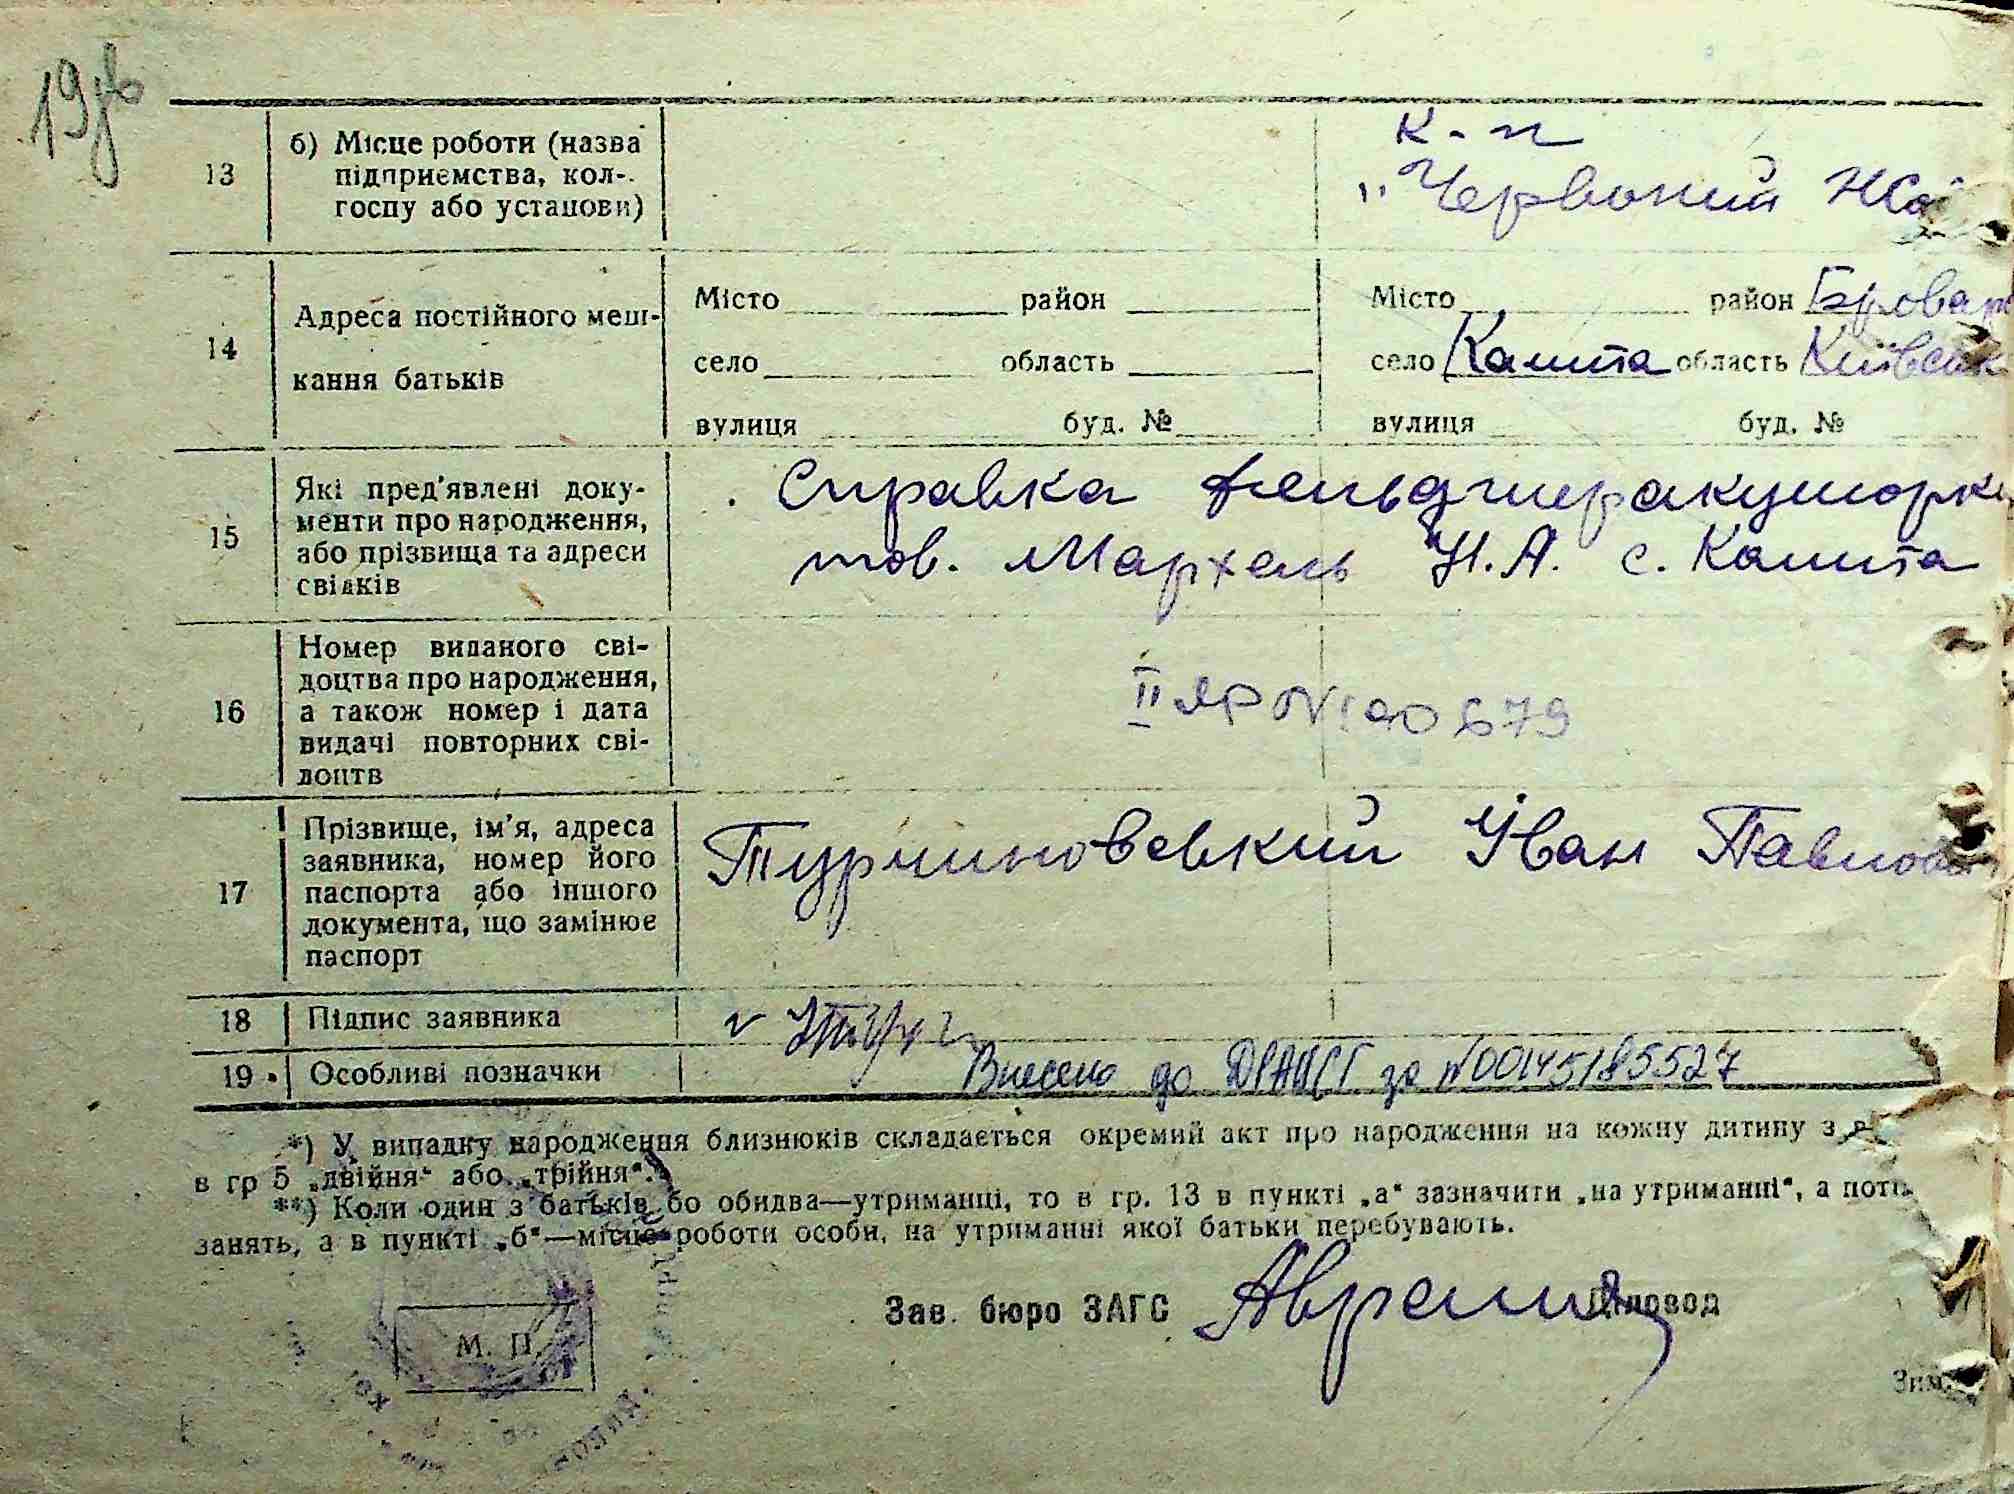 19зв
13 б) Місце роботи (назва підприємства, колгоспу або установи)
к-п
"Червоний
14 Адреса постійного мешкання батьків
Місто район
село область
вулиця буд. №
Місто район Бровар
село Калита область Київськ
вулиця буд. №
15 Які пред'явлені документи про народження, або прізвища та адреси свідків
Справка фельдшеракушорки
тов. Мархель Н.А. с. Калита
16 Номер виданого свідоцтва про народження, а також номер і дата видачі повторних свідоцтв
II ЯР № 190679
17 Прізвище, ім'я, адреса заявника, номер його паспорта або іншого документа, що замінює паспорт
Турчиновський Іван Павлов
18 Підпис заявника
19 Особливі позначки
Внесено до ДРАЦСГ за №00145185527
*) У випадку народження близнюків складається окремий акт про народження на кожну дитину з
в гр 5 „двійня“ або „трійня“.
**) Коли один з батьків бо обидва—утриманці, то в гр. 13 в пункті „а“ зазначити „на утриманні“, а поті
занять, а в пункті „б“—місце роботи особи, на утриманні якої батьки перебувають.
Зав. бюро ЗАГС Діловод
М. П.